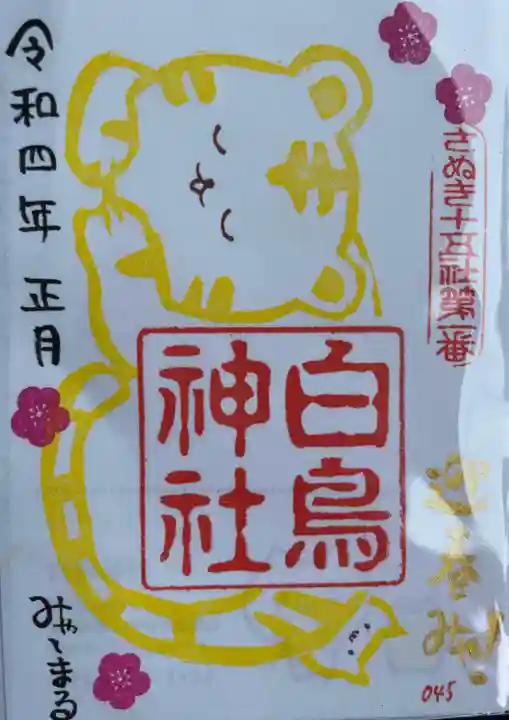 さぬき十五社第一番
迎春
045
白鳥
神社
令和四年 正月
みゃ〜まる